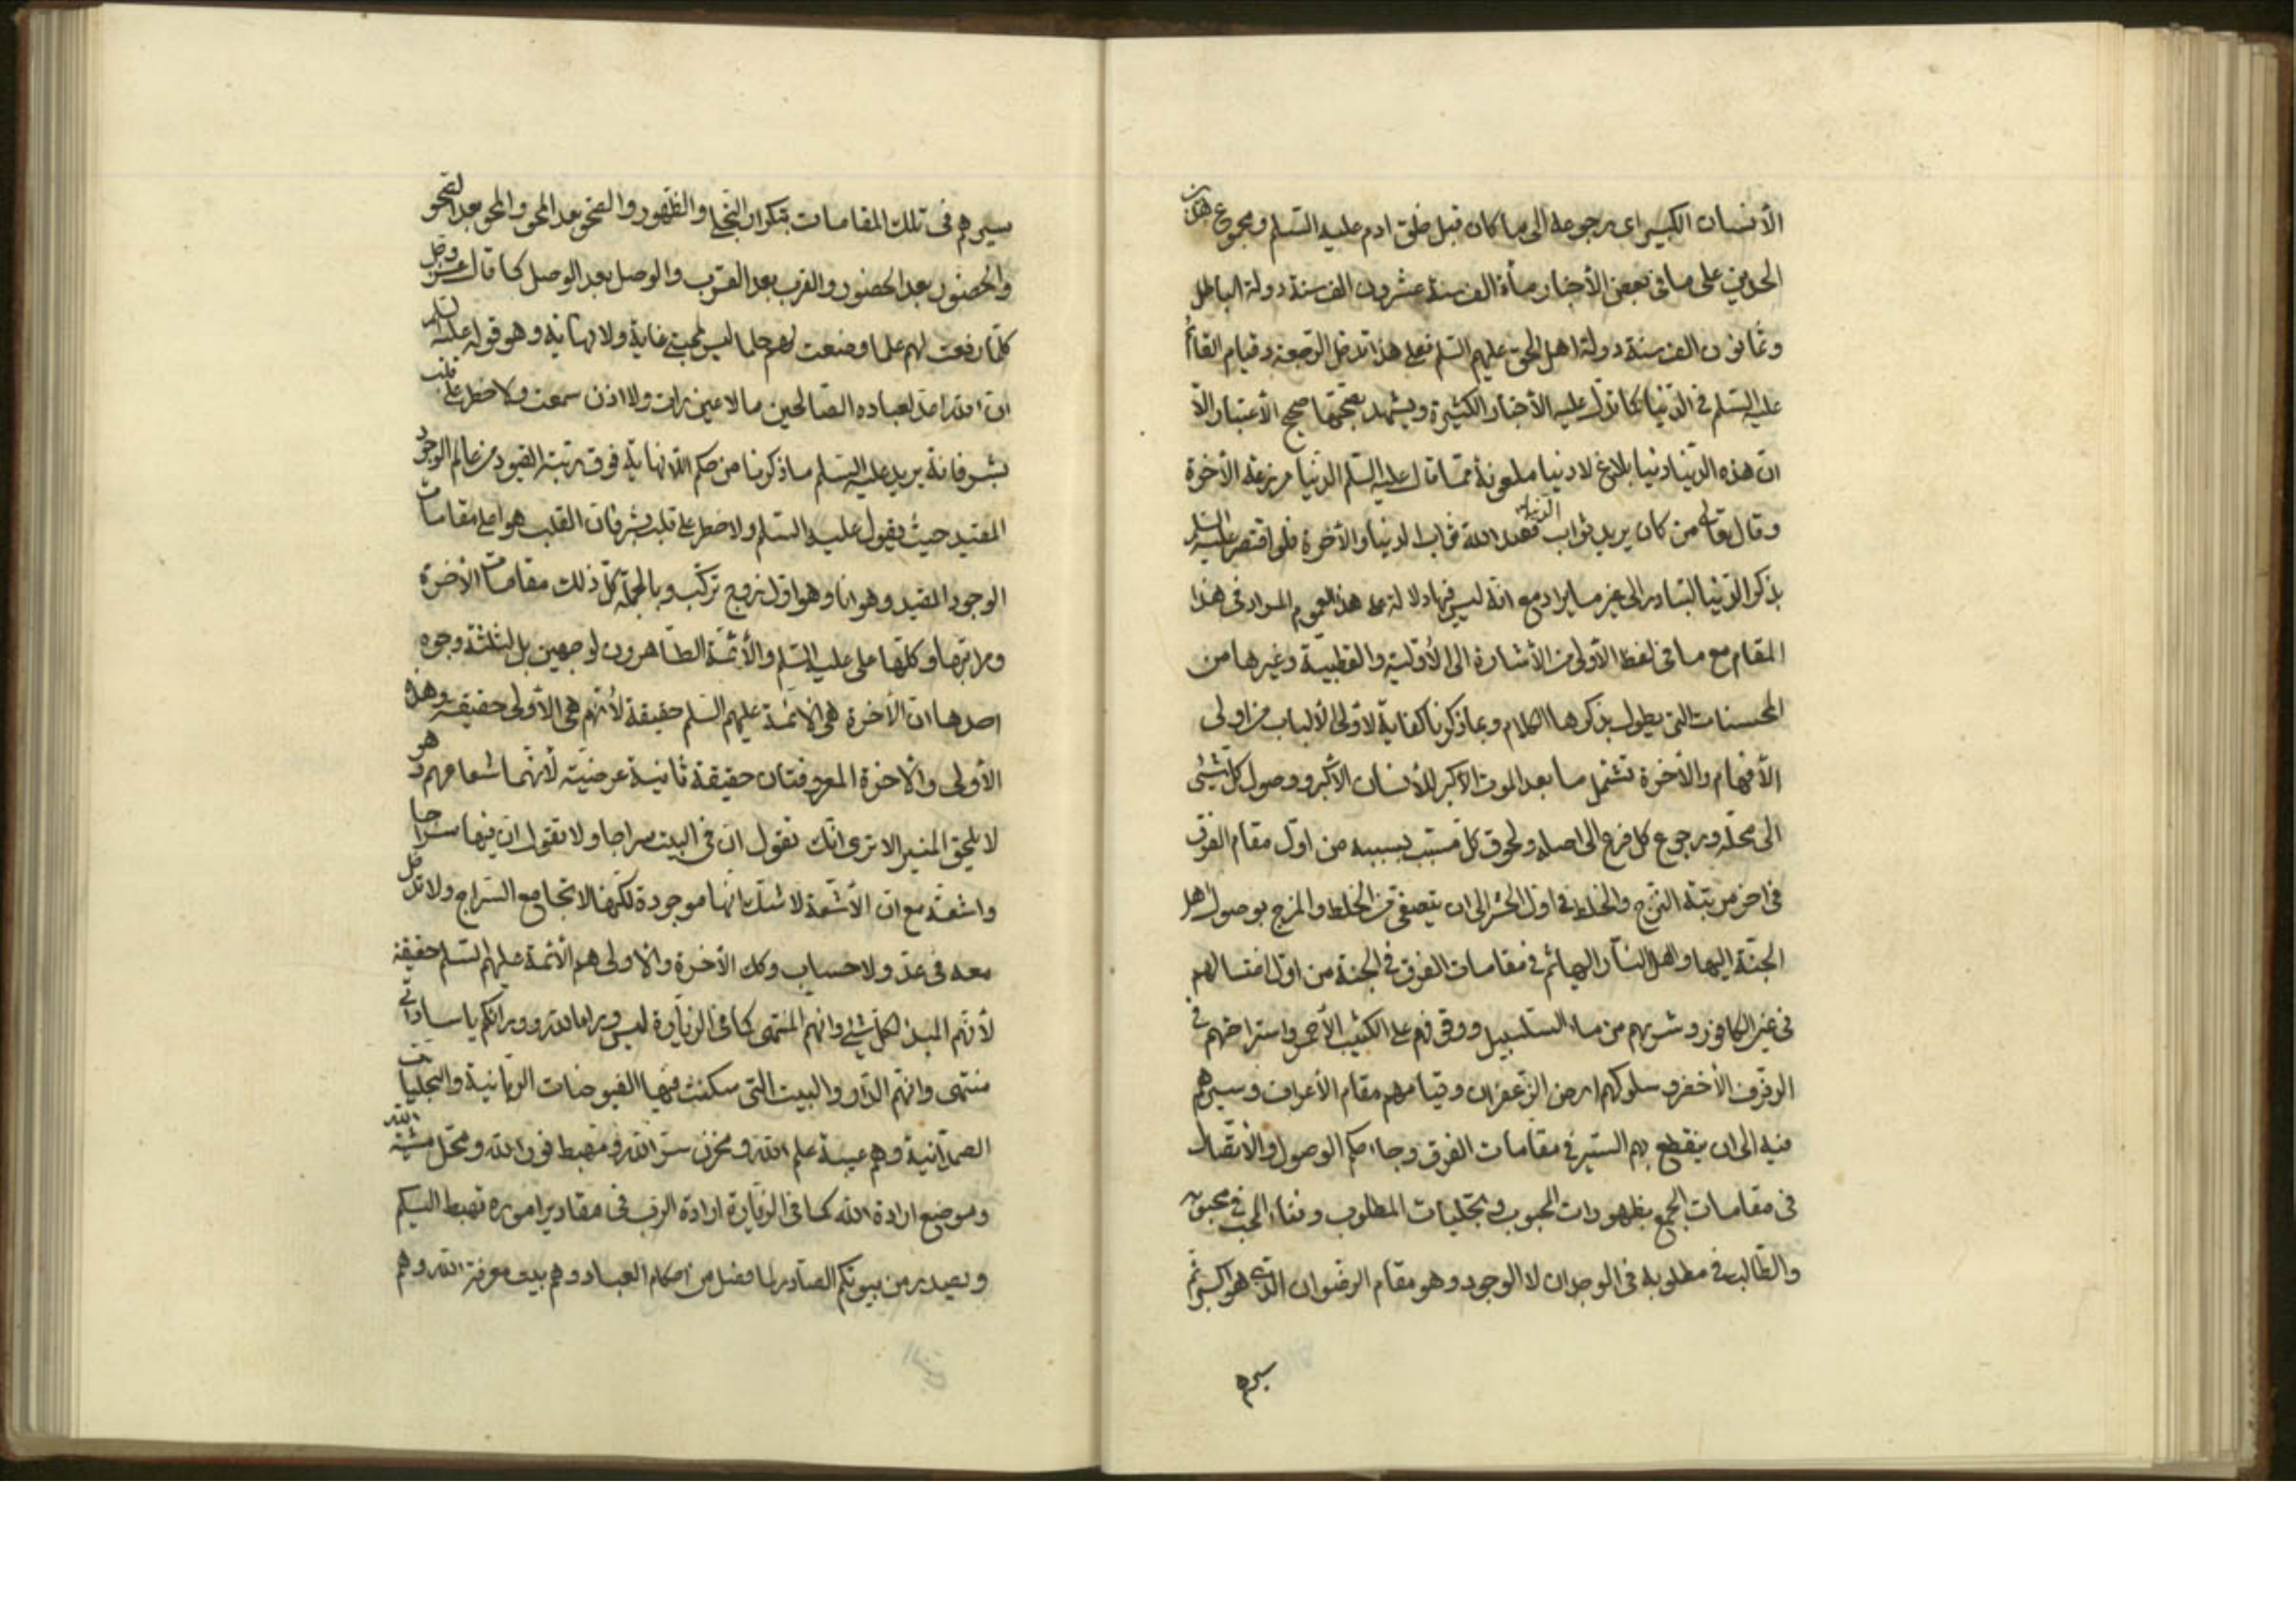 الأنسان الكبير اى رجوعه الى ما كان قبل خلق ادم عليه السّلم ومجموع هذين
الحدين على ما فى بعض الأخبار مأة الف سنة عشرون الف سنة دولة الباطل
وثمانون الف سنة دولة اهل الحق عليهم السّلم فعلى هذا تدخل الرّجعة وقيام القائم
عليه السّلم فى الدّنيا كما تدل عليه الأخبار الكثيرة ويشهد بصحّتها صحيح الأعتبار الّا
ان هذه الدّنيا دنيا بلاغ لا دنيا ملعونة ممّا قال عليه السّلم الدّنيا مزرعة الأخرة
وقال تعالى من كان يريد ثواب الدّنيا فعند الله ثواب الدنيا والأخرة فلو اقتصر عليه السلم
بذكر الدّنيا لتبادر الى غير ما يراد مع انّه ليس فيها دلالة على هذا العموم المراد فى هذا
المقام مع ما فى لفظ الأولى من الأشارة الى الأوّلية والقطبيّة وغيرها من
المحسنات التى يطول بذكرها الكلام وبما ذكرنا كفاية لاولى الألباب من اولى
الأفهام والأخرة تشتمل ما بعد الموت الأكبر للأنسان الأكبر ووصول كل شيئ
الى محلّه ورجوع كل فرع الى اصله ولحوق كل مسبّب بسببه من اول مقام الفرق
فى اخر مرتبة المزج والخلط فى اول الحشر الى ان يتصفى من الخلط والمزج بوصول اهل
الجنّة اليها واهل النّار اليها ثم فى مقامات الفرق فى الجنة من اول اغتسالهم
فى عين الكافور وشربهم من ماء السّلسبيل ووقوفهم على الكثيب الأحمر واستراحتهم فى
الرفرف الأخضر وسلوكهم ارض الزّعفران وقيامهم مقام الأعراف وسيرهم
فيه الى ان ينقطع بهم السّير فى مقامات الفرق وجاء حكم الوصول والأتّصال
فى مقامات الجمع بظهورات المحبوب وتجلّيات المطلوب وفناء المحب فى محبوبه
والطّالب فى مطلوبه فى الوجدان لا الوجود وهو مقام الرضوان الذى هو اكبر ثم
سيرهم
سيرهم فى تلك المقامات بتكرار التجلى والظّهور والصّحو بعد المحو والمحو بعد الصحو
والحضور بعد الحضور والقرب بعد القرب والوصل بعد الوصل كما قال عز وجل
كلّما رفعت لهم علما وضعت لهم حلما ليس لمحبتى غاية ولا نهاية وهو قوله عليه السلم
ان الله اعدّ لعباده الصّالحين ما لا عين رات ولا اذن سمعت ولا خطر على قلب
بشر فانّه يريد عليه السّلم ما ذكرنا من حكم اللّانهاية فوق رتبة القيود من عالم الوجود
المقيد حيث يقول عليه السّلم ولا خطر على قلب بشر فان القلب هو اعلى مقامات
الوجود المقيد وهو انا وهو اول زوج تركّب وبالجملة كل ذلك مقامات الأخرة
ومراتبها وكلّها على عليه السّلم والأئمّة الطّاهرون لوجهين بل لثلثة وجوه
احدها ان الأخرة هى الائمّة عليهم السّلم حقيقة لأنهم هى الأولى حقيقة وهذه
الأولى والأخرة المعروفتان حقيقة ثانية عرضيّة لأنهما شعاعهم وهو
لا يلحق المنير الا ترى انّك تقول ان فى البيت سراجا ولا تقول ان فيها سراجا
واشعّة مع ان الأشعّة لا شك انّها موجودة لكّنها لا تجامع السّراج ولا تدخل
معه فى عدّ ولا حساب وكك الأخرة والاولى هم الأئمة عليهم السّلم حقيقة
لأنّهم المبدء لكل شيئ وانهم المنتهى كما فى الزيارة ليس وراء الله وورائكم يا ساداتى
منتهى وانهم الدّار والبيت التى سكنت فيها الفيوضات الربّانية والتجليات
الصمدّانية وهم عيبة علم الله ومخزن سرّ الله ومهبط نور الله ومحلّ مشيّة الله
وموضع ارادة الله كما فى الزيارة ارادة الرب فى مقادير اموره تهبط اليكم
ويصدر من بيوتكم الصّادر لما فصل من احكام العباد وهم بيت معرفة الله وهم